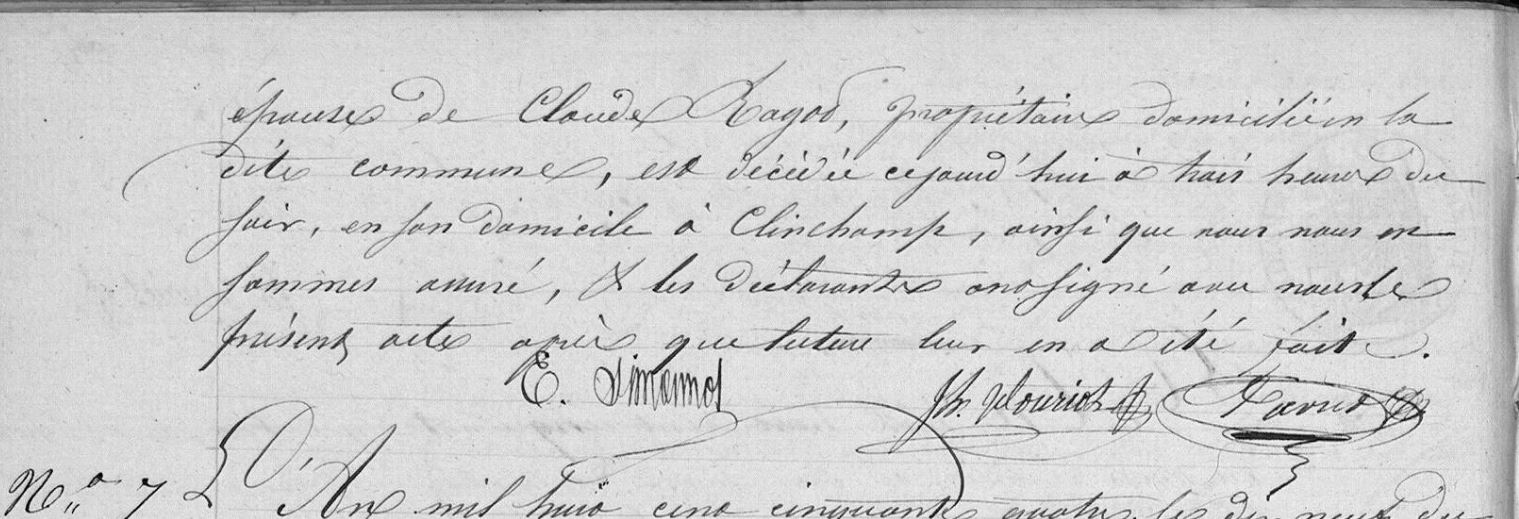 épouse de Claude Ragot, propriétaire domicilié en la
dite commune, est décédée cejourd'hui à trois heures du
soir, en son domicile à Clinchamp, ainsi que nous nous en
sommes assuré, & les déclarants ont signé avec nous le
présent acte après que lecture leur en a été faite.
E. Simonnot
Nº 7 L'An mil huit cent cinquante quatre, le dix neuf du